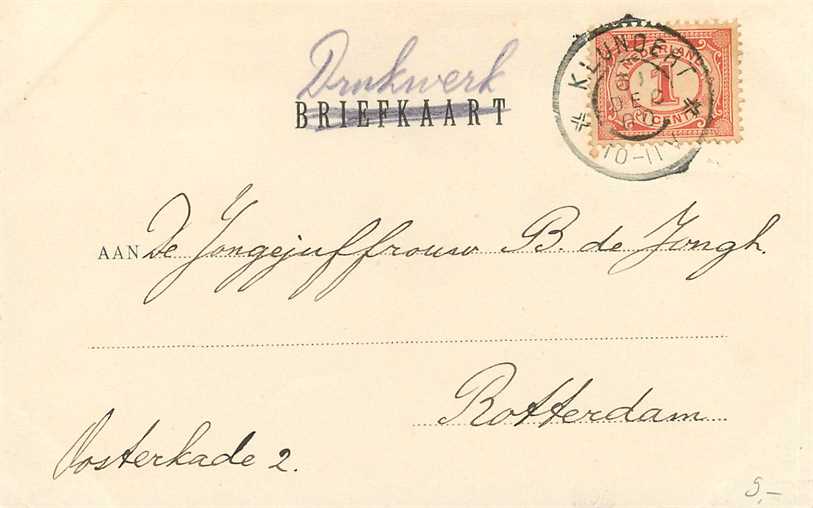 Drukwerk
BRIEFKAART
KLUNDERT
NEDERLAND
1
DEC
CENT
10-11V
AAN De Jongejuffrouw B. de Jongh.
Rotterdam
Oosterkade 2.
5,-